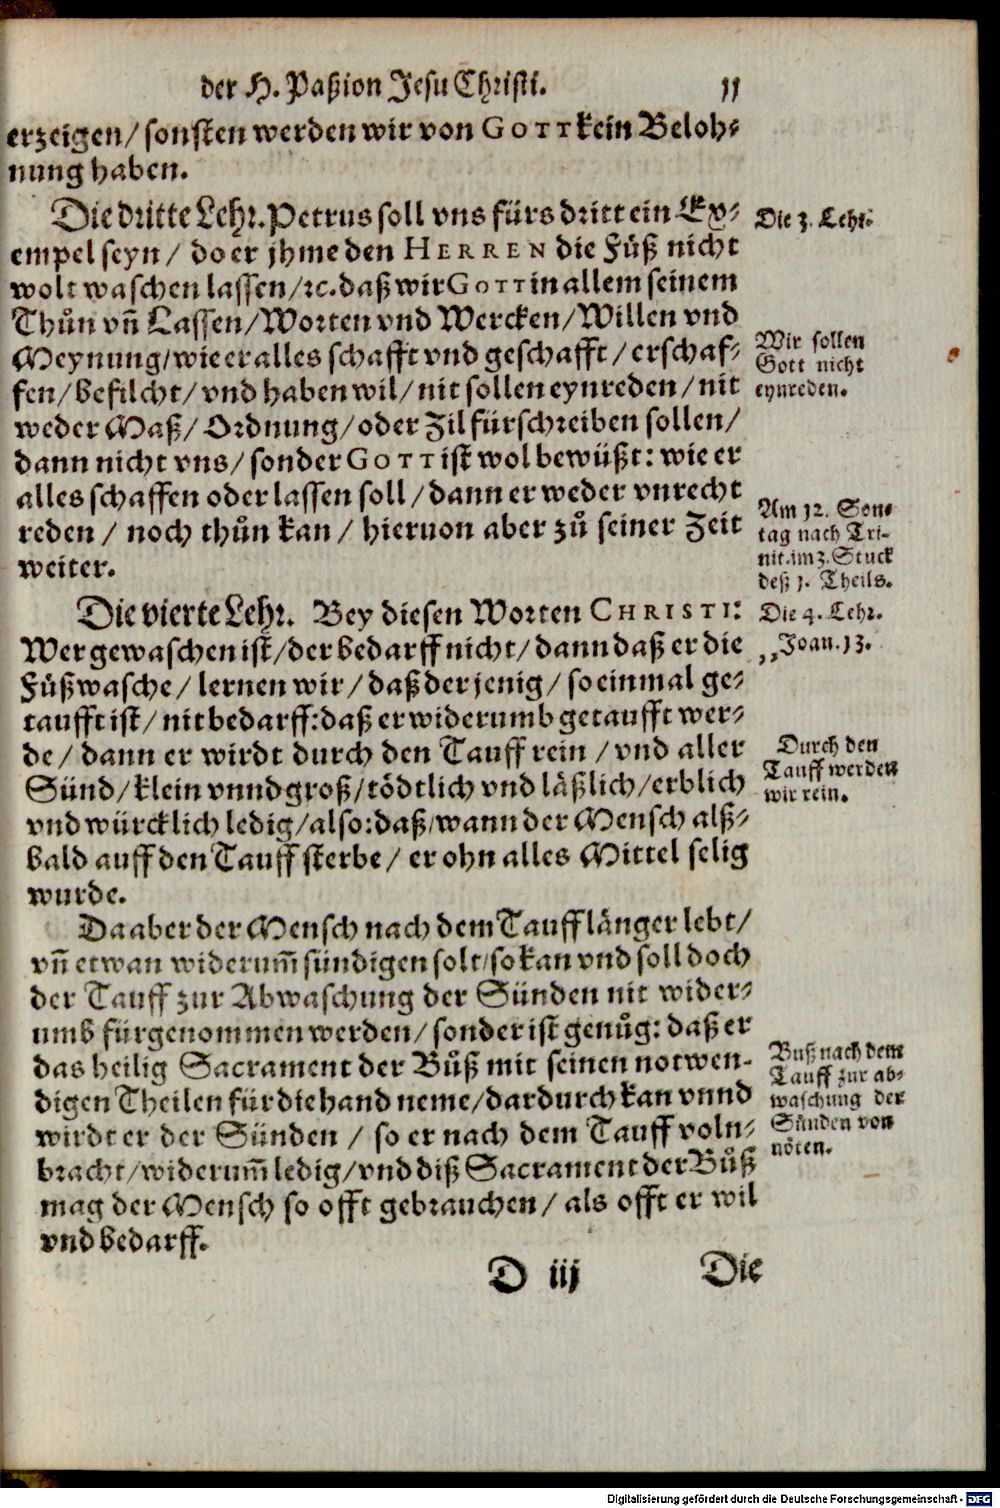 der H. Paßion Jesu Christi. 11
erzeigen/ sonsten werden wir von GOTT kein Beloh⸗
nung haben.
Die dritte Lehr. Petrus soll vns fürs dritt ein Ex⸗
empel seyn/ do er jhme den HERREN die Füß nicht
wolt waschen lassen/ ꝛc. daß wir GOTT in allem seinem
Thůn vñ Lassen/ Worten vnd Wercken/ Willen vnd
Meynung/ wie er alles schafft vnd geschafft/ erschaf⸗
fen/ befilcht/ vnd haben wil/ nit sollen eynreden/ nit
weder Maß/ Ordnung/ oder Zil fürschreiben sollen/
dann nicht vns/ sonder GOTT ist wol bewüßt: wie er
alles schaffen oder lassen soll/ dann er weder vnrecht
reden/ noch thůn kan/ hieruon aber zů seiner Zeit
weiter.
Die vierte Lehr. Bey diesen Worten CHRISTI:
Wer gewaschen ist/ der bedarff nicht/ dann daß er die
Füß wasche/ lernen wir/ daß der jenig/ so einmal ge⸗
taufft ist/ nit bedarff: daß er widerumb getaufft wer⸗
de/ dann er wirdt durch den Tauff rein/ vnd aller
Sünd/ klein vnnd groß/ tödtlich vnd läßlich/ erblich
vnd würcklich ledig/ also: daß/ wann der Mensch alß⸗
bald auff den Tauff sterbe/ er ohn alles Mittel selig
wurde.
Da aber der Mensch nach dem Tauff länger lebt/
vñ etwan widerum̃ sündigen solt/ so kan vnd soll doch
der Tauff zur Abwaschung der Sünden nit wider⸗
umb fürgenommen werden/ sonder ist genůg: daß er
das heilig Sacrament der Bůß mit seinen notwen⸗
digen Theilen für die hand neme/ dardurch kan vnnd
wirdt er der Sünden/ so er nach dem Tauff voln⸗
bracht/ widerum̃ ledig/ vnd diß Sacrament der Bůß
mag der Mensch so offt gebrauchen/ als offt er wil
vnd bedarff.
D iij Die
Die 3. Lehr.
Wir sollen
Gott nicht
eynreden.
Am 12. Son⸗
tag nach Tri-
nit. im 3. Stuck
deß 1. Theils.
Die 4. Lehr.
,,Joan. 13.
Durch den
Tauff werden
wir rein.
Buß nach dem
Tauff zur ab⸗
waschung der
Sünden von
nöten.
Digitalisierung gefördert durch die Deutsche Forschungsgemeinschaft - DFG